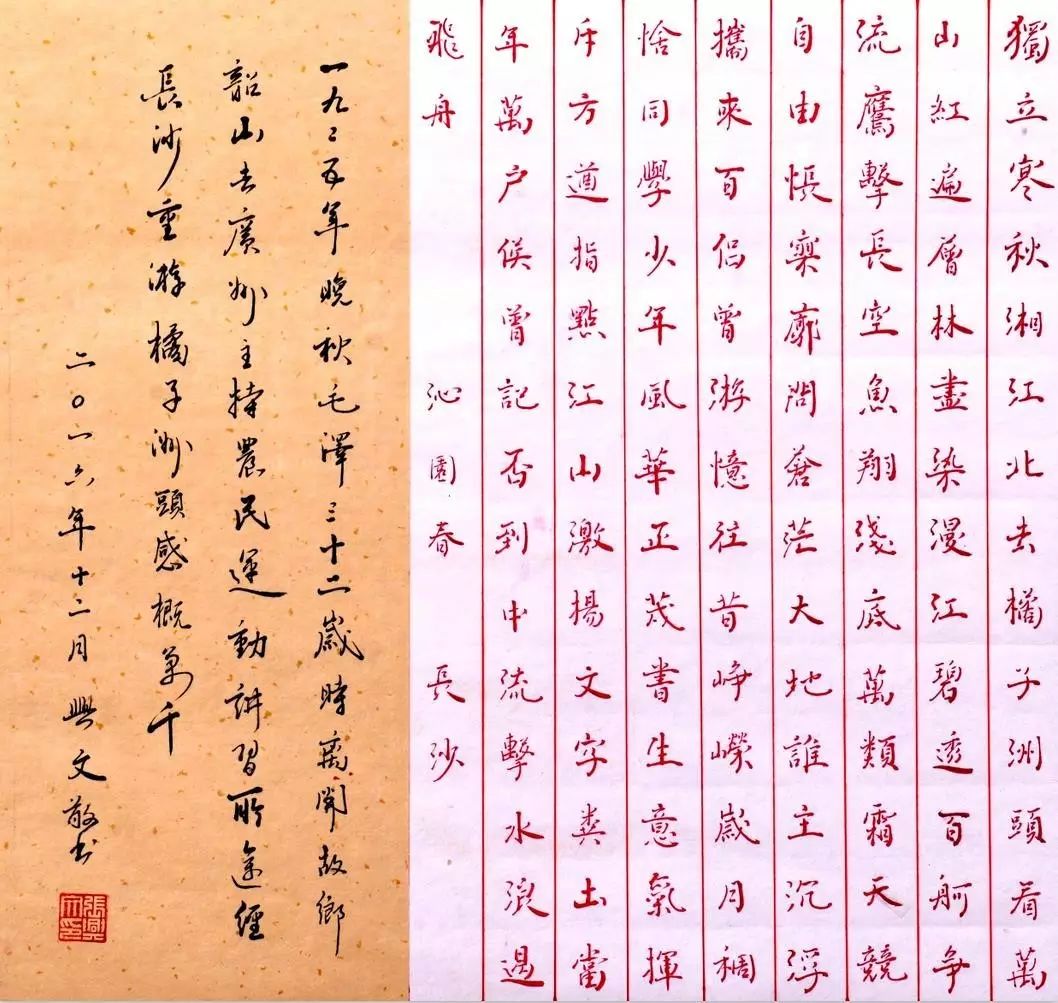 獨立寒秋湘江北去橘子洲頭看萬
山紅遍層林盡染漫江碧透百舸争
流鷹擊長空魚翔淺底萬類霜天競
自由悵寥廓問蒼茫大地誰主沉浮
攜來百侣曾游憶往昔崢嶸歲月稠
恰同學少年風華正茂書生意氣揮
斥方遒指點江山激揚文字糞土當
年萬户侯曾記否到中流擊水浪遏
飛舟 沁園春 長沙
一九二五年晚秋毛澤三十二歲時离開故鄉
韶山去廣州主持農民運動講習所途經
長沙重游橘子洲頭感概萬千
二〇一六年十二月 興文敬書
張興文印